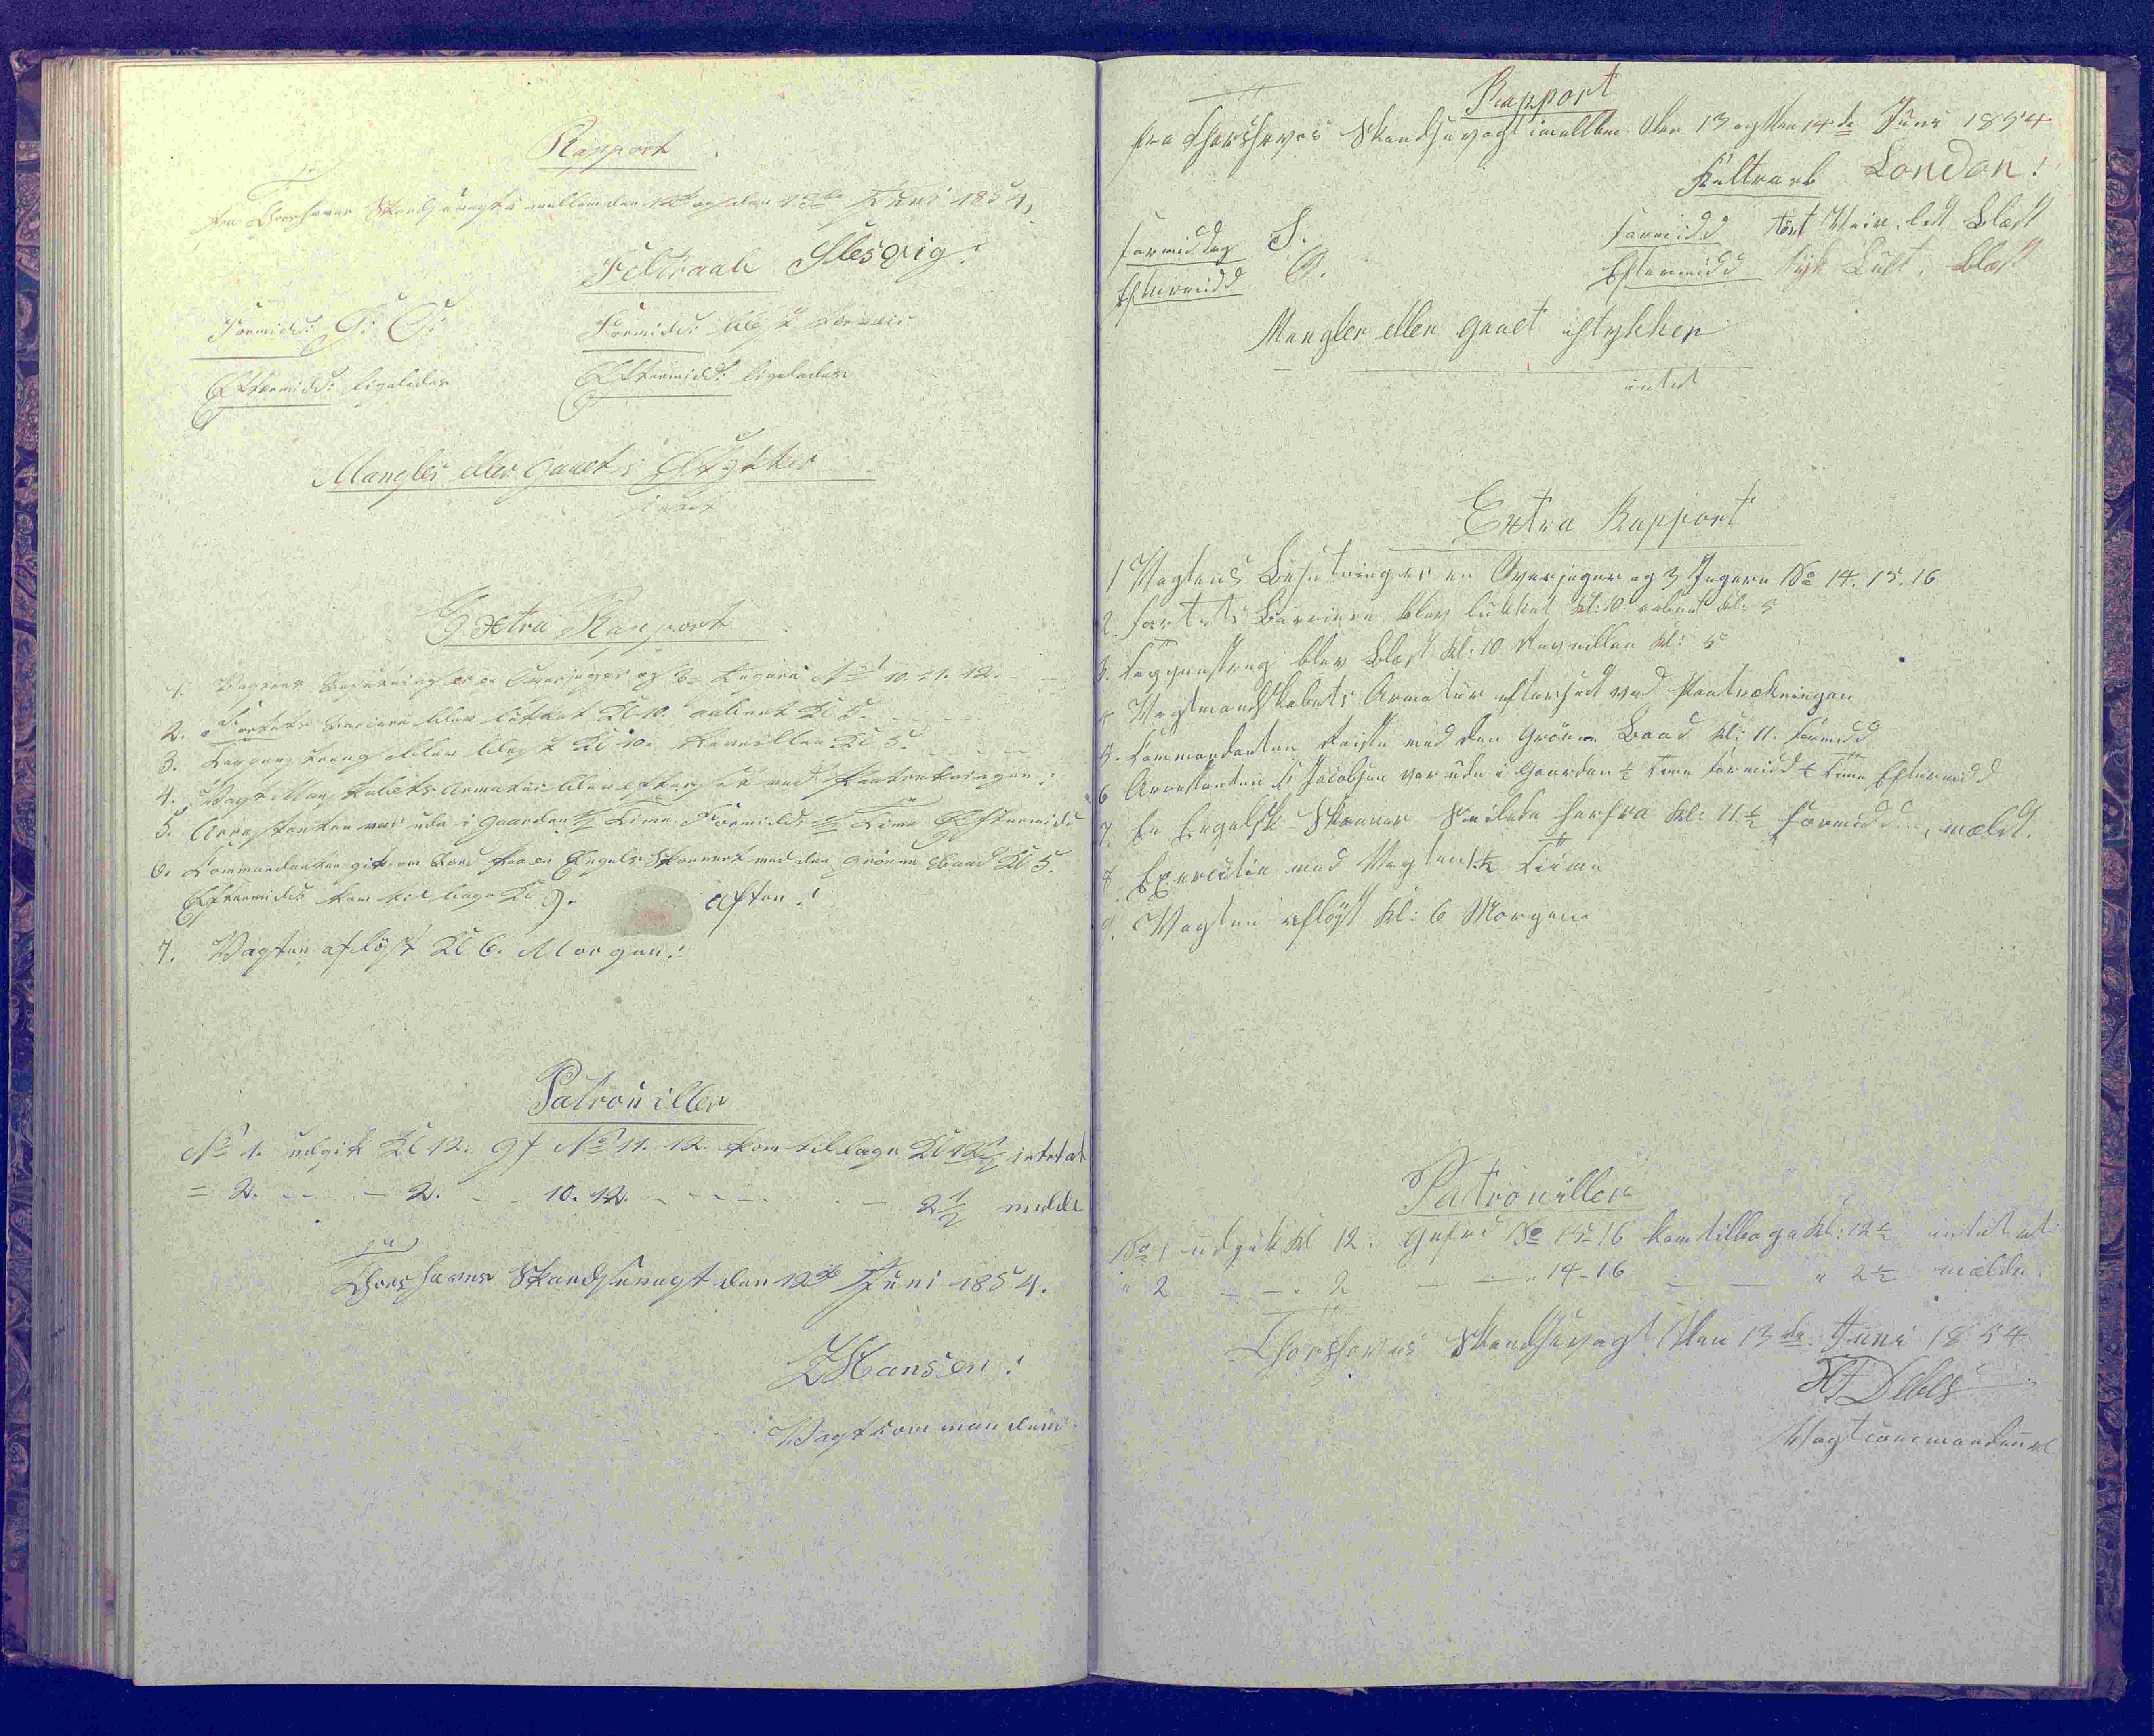 Rapport
fra Thorshavns Skandsevagt imellem den 12te og den 13de Juni 1854,
Feltraab Slesvig!
Formidd: S: O:
Formidd: blæst
Eftermidd: ligeledes
Eftermidd: ligeledes
Mangler eller gaaet i Stykker
intet
Extra Rapport
1. Vagtens Besætning er en Overjæger og 3 Jægere No 10. 11. 12.
2. Fortets Barriere blev lukket Kl 10. aabnet Kl 5.
3. Tappenstreg blev blæst Kl 10. Reveillen Kl 5.
4. Vagtmandskabets Armatur blev efterset ved Fratrækningen!
5. Arrestanten var ude i Gaarden 1/2 Time Formidd: 1/2 Time Eftermidd
6. Commandanten gik om Bord paa en Engelsk Skonnert med den Grönne Baad Kl 5.
Eftermidd kom tilbage Kl 9. Aften!
7. Vagten aflöst Kl 6. Morgen!
Patrouiller
No 1. udgik Kl 12. Gf No 11. 12. kom tilbage Kl 12 1/2 intet at
= 2. - - - 2. - - 10. 12. - - - - - 2 1/2 melde
Thorshavns Skandsevagt den 12te Juni 1854.
Z Hansen!
Vagtcommandeur
Rapport
fra Thorshavns Skandsevagt imellem den 13 og den 14de Juni 1854
Feltraab London!
Formiddag S.
Formidd tört Veir, let Blæst
Eftermidd O.
Eftermidd tyk Luft, Blæst
Mangler eller gaaet istykker
intet
Extra Rapport
1 Vagtens Besætning er en Overjæger og 3 Jægere No 14. 15. 16
2. Fortets Barriere blev lukket Kl: 10 aabnet Kl: 5
3. Tappenstreg blev blæst Kl: 10 Reveillen Kl: 5
4 Vagtmandskabets Armatur efterseet ved Fratrækningen
5. Commandanten reiste med den Grönne Baad Kl: 11. Formidd
6 Arrestanten Jacobsen var ude i Gaarden 1/2 Time Formidd 1/2 Time Eftermidd
7. En Engelsk Skonner seilede herfra Kl: 11 1/2 Formidd, mældt.
8 Exercitie med Vagten 1 1/2 Time
9. Vagten aflöst Kl: 6 Morgen
Patrouiller
No 1 udgik Kl 12. Gefrd No 15-16 kom tilbage Kl: 12 1/2 intet at
" 2 - - " 2 - - " 14-16 - - " 2 1/2 mælde.
Thorshavns Skandsevagt den 13de Juni 1854
Debes
Vagtcommandeur